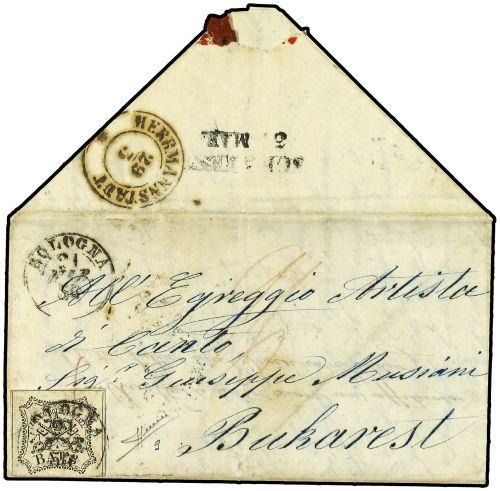 HERRMANNSTADT
29
3
6 MAR
BOLOGNA
21
All' Egreggio Artista
di Canto,
Sig.r Giuseppe Musiani
Bukarest
BOLOGNA
BAJ
9